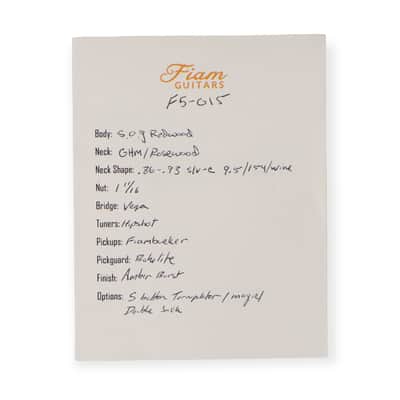 Fiam
GUITARS
FS-015
Body: S.O.J Redwood
Neck: GHM/Rosewood
Neck Shape: .86-.93 9.5/
Nut: 1 11/16
Bridge: Vega
Tuners: Hipshot
Pickups: Fiambucker
Pickguard: Bakelite
Finish: Amber Burst
Options: 5 button
Double Jack